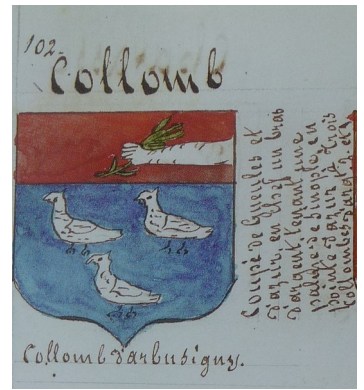 102.
Collomb
Coupé de Gueules et
d'azur, en chef un bras
d'argent tenant une
palme de sinople, en
pointe d'azur à trois
Collombes d'argt 2 et 1
Collomb d'arbusigny.